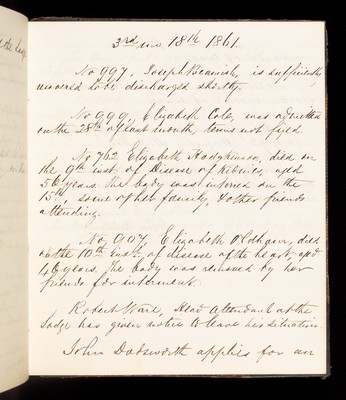 3rd mo 18th 1861.
No 997, Joseph Beamish, is sufficiently
recovered to be discharged shortly.
No 999, Elizabeth Cole, was admitted
on the 28th of last month, terms not fixed.
No 762 Elizabeth Hodgkinson, died on
the 9th inst. of Disease of Kidnies, aged
50 years. the body was interred on the
15th, some of her family, & other friends
attending.
No 907 Elizabeth Oldham, died
on the 10th inst. of disease of the heart, aged
46 years, the body was removed by her
friends for interment.
Robert Ware, Head Attendant at the
Lodge has given notice to leave his situation.
John Dodsworth applies for an